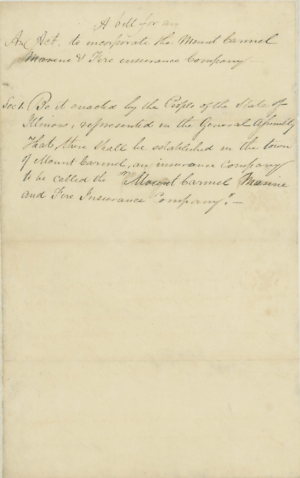 A bill for an
An Act, to incorporate the Mount Carmel
Marine & Fire insurance Company
Sec 1 Be it enacted by the People of the State of
Illinois, represented in the General Assembly
That, there shall be established in the town
of Mount Carmel, an insurance Company
to be called the "Mount Carmel Marine
and Fire Insurance Company".—